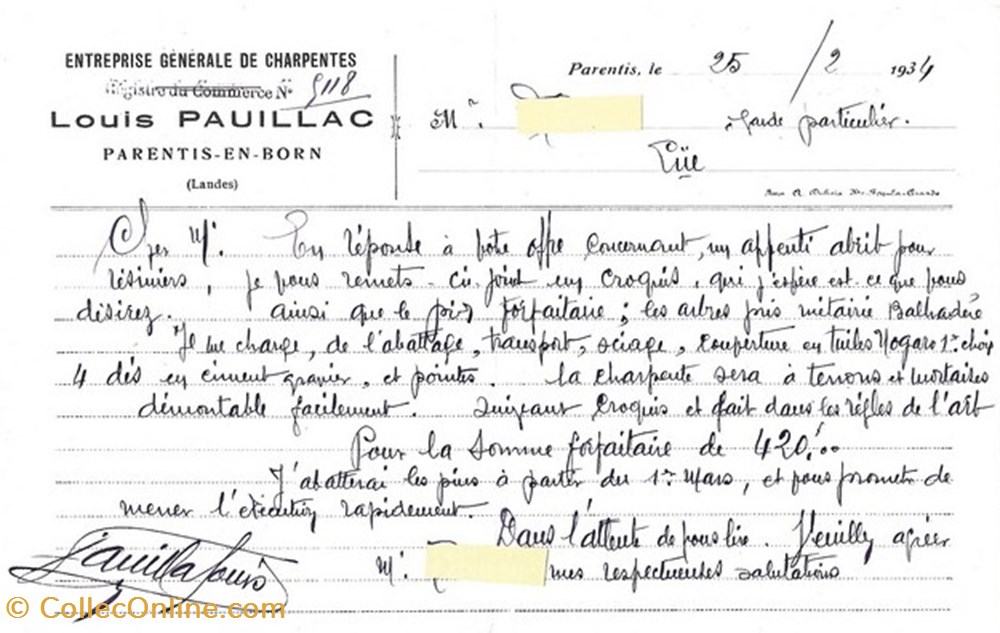 ENTREPRISE GÉNÉRALE DE CHARPENTES
Registre du Commerce N° 9118
Louis PAUILLAC
PARENTIS-EN-BORN
(Landes)
Parentis, le 25 / 2 1934
Mr. garde particulier.
Lüe
Cher Mr. En réponse à votre offre concernant, un appenti abrit pour
résiniers, je vous remets ci-joint un croquis, qui j'espère est ce que vous
désirez. ainsi que le prix forfaitaire; les arbres pris métairie Balhadère
Je me charge, de l'abattage, transport, sciage, couverture en tuiles Nogaro 1er choix
4 dés en ciment gravier, et pointes. La charpente sera à tenons et mortaises
démontable facilement. suivant croquis et fait dans les règles de l'art
Pour la somme forfaitaire de 420,00
J'abatterai les pins à partir du 1er Mars, et vous promets de
mener l'exécution rapidement.
Dans l'attente de vous lire. Veuillez agréer
Mr. mes respectueuses salutations
Pauillac Louis
© CollecOnline.com